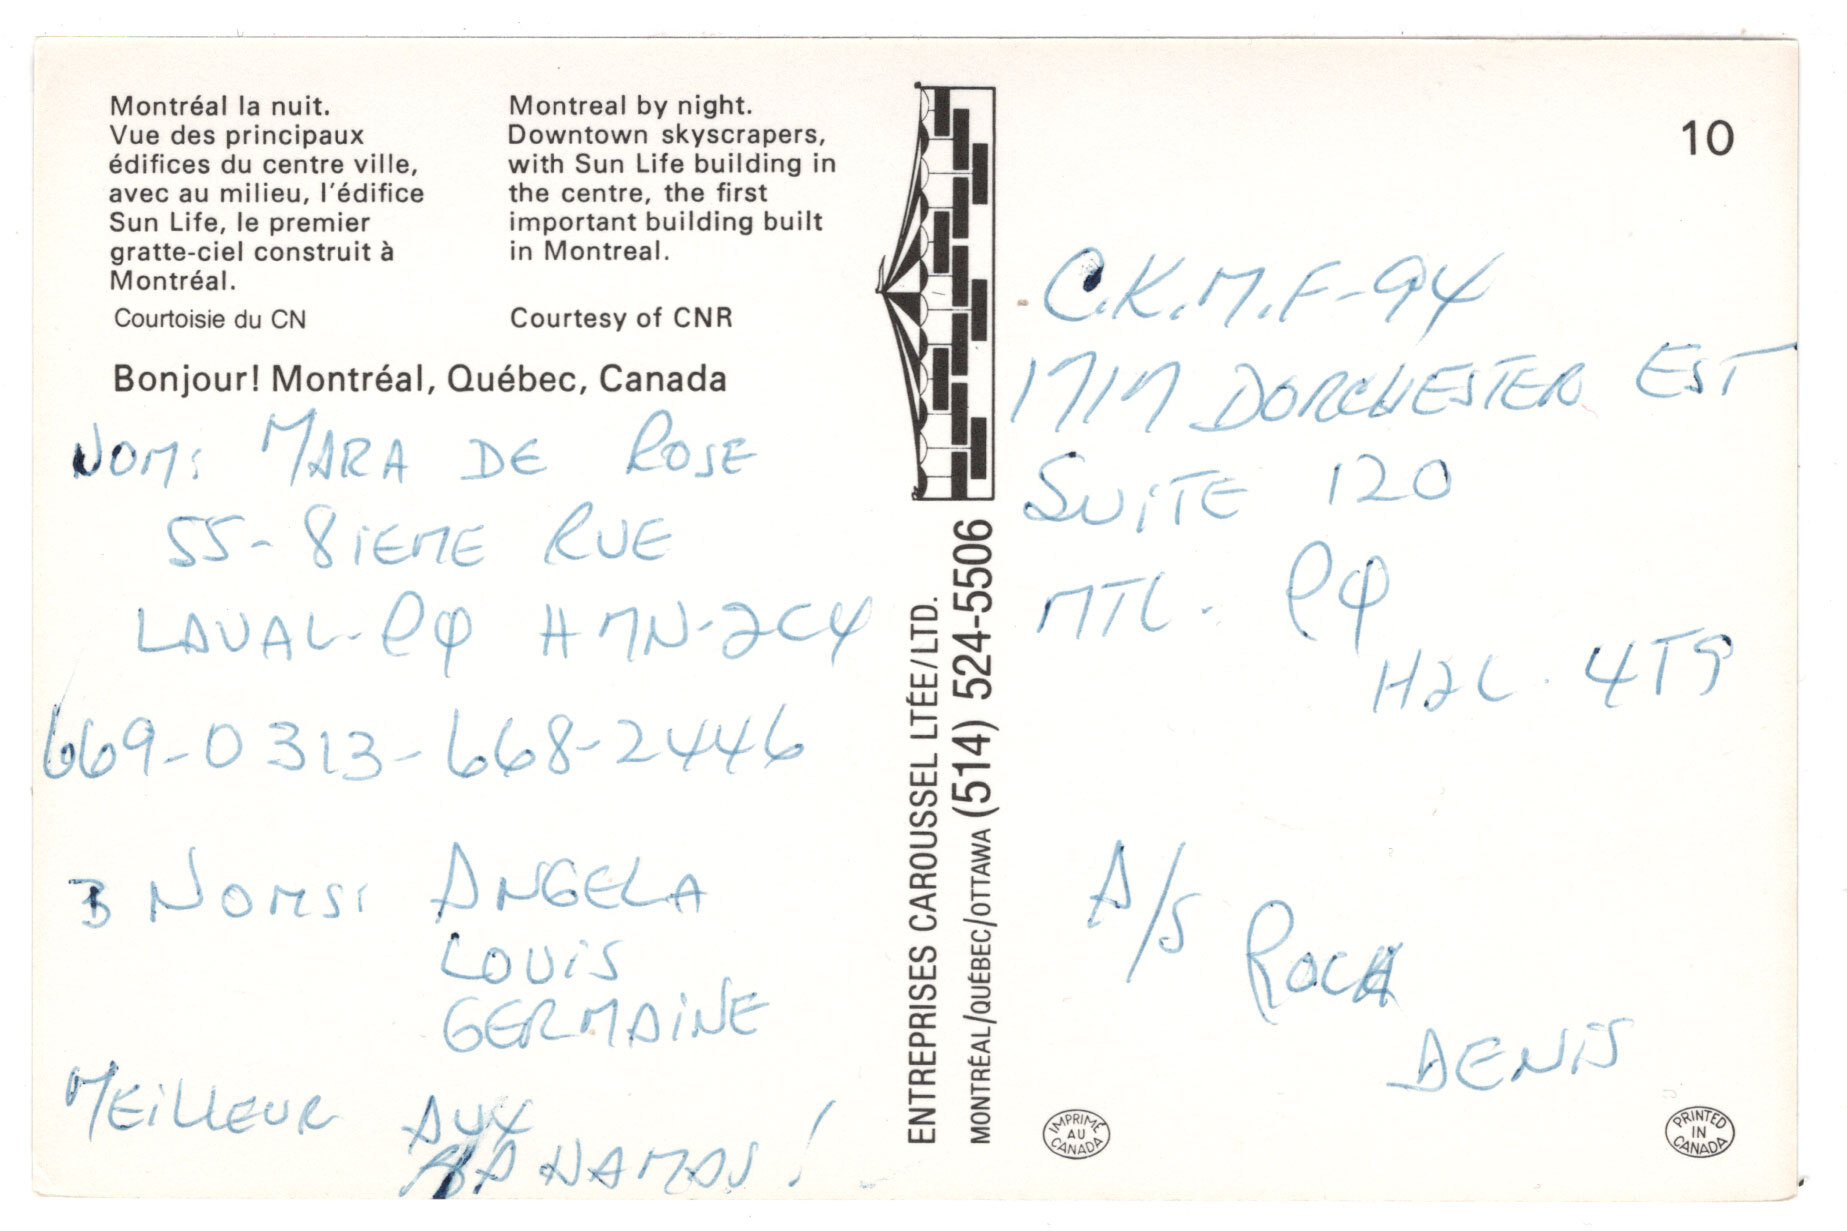 Montréal la nuit.
Vue des principaux
édifices du centre ville,
avec au milieu, l'édifice
Sun Life, le premier
gratte-ciel construit à
Montréal.
Courtoisie du CN
Montreal by night.
Downtown skyscrapers,
with Sun Life building in
the centre, the first
important building built
in Montreal.
Courtesy of CNR
Bonjour! Montréal, Québec, Canada
NOM: MARA DE ROSE
55-8IEME RUE
LAVAL-PQ H7N-2C4
669-0313-668-2446
3 NOMS: ANGELA
LOUIS
GERMAINE
MEILLEUR AUX
BANAMAS!
ENTREPRISES CAROUSSEL LTÉE/LTD.
MONTRÉAL/QUÉBEC/OTTAWA (514) 524-5506
10
C.K.M.F-94
1717 DORCHESTER EST
SUITE 120
MTL. PQ
H2L. 4T9
A/S ROCH
DENIS
IMPRIMÉ
AU
CANADA
PRINTED
IN
CANADA